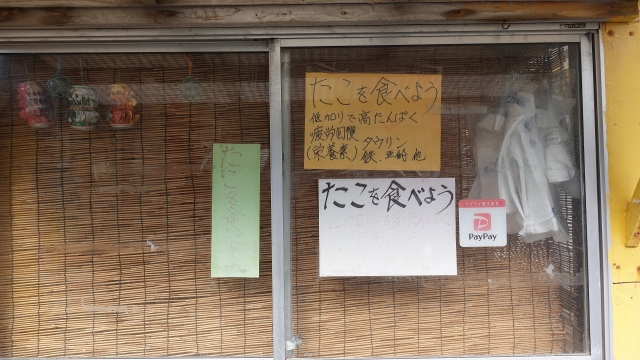 たこを食べよう
低カロリで高たんぱく
疲労回復
(栄養素) タウリン
鉄.亜鉛 他
たこを食べよう
PayPay
たこを